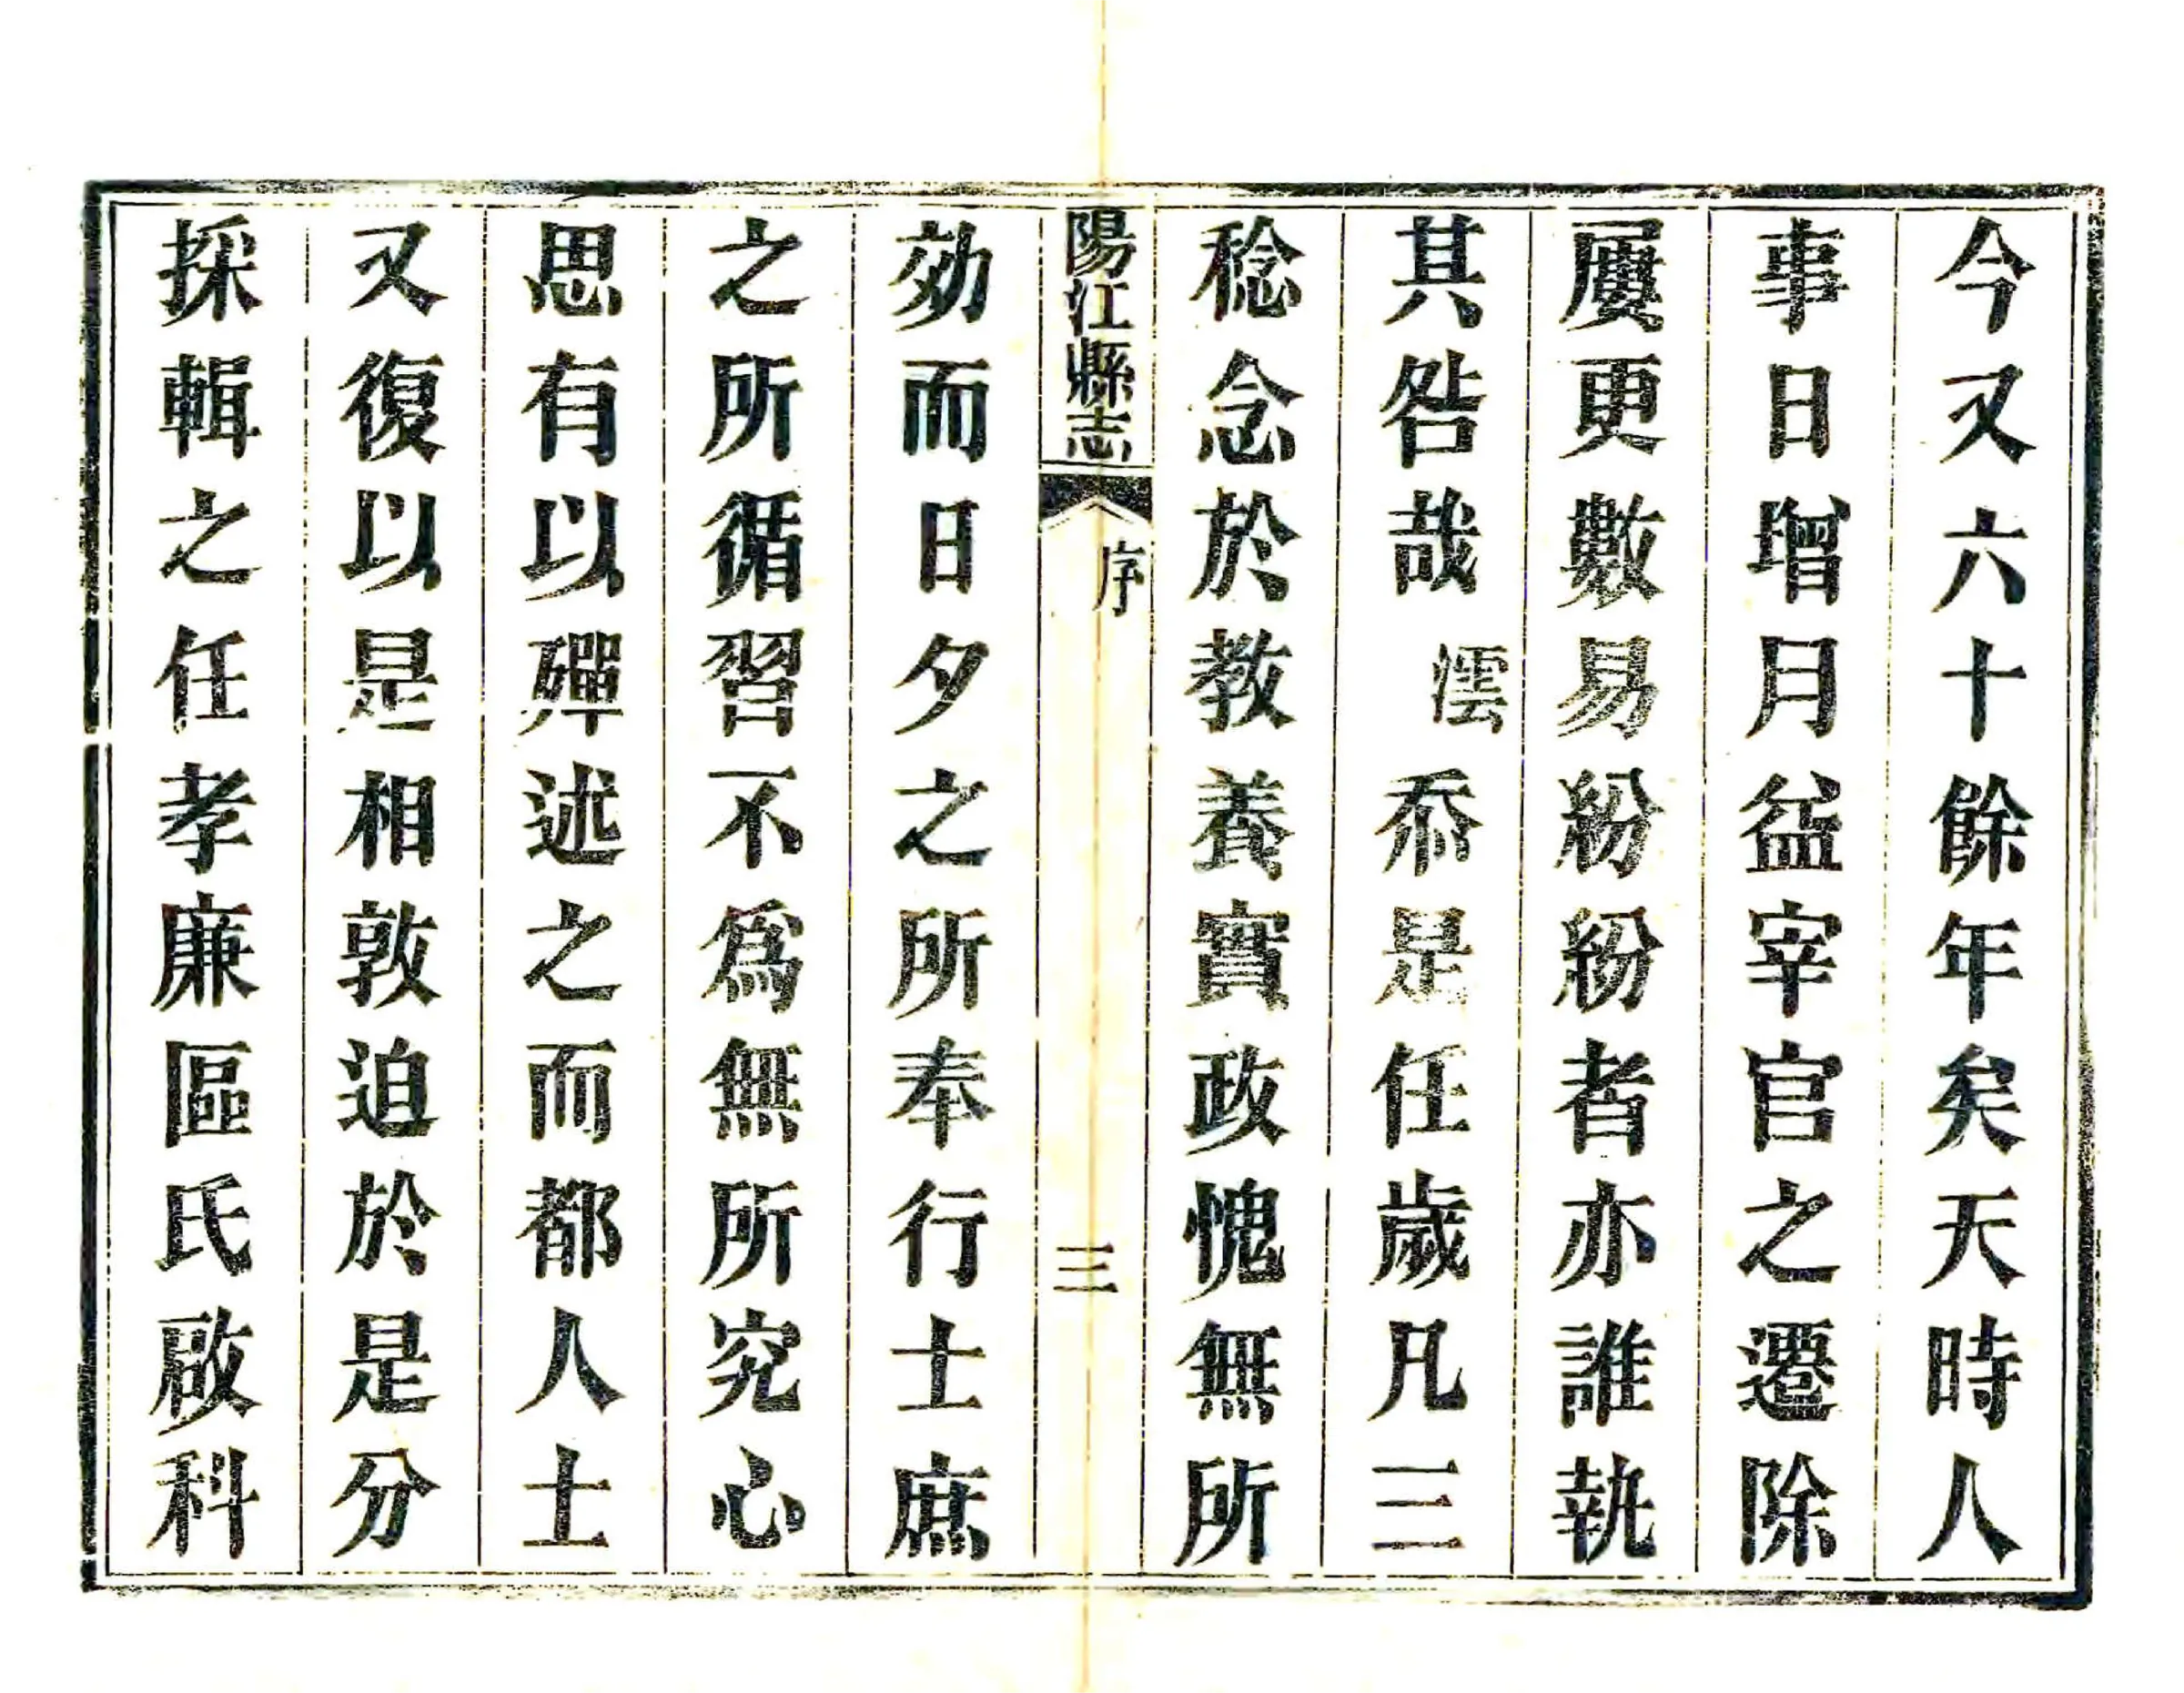 今又六十餘年矣天時人
事日增月益宰官之遷除
屢更數易紛紛者亦誰執
其咎哉澐忝是任歲凡三
稔念於教養實政愧無所
陽江縣志 序 三
効而日夕之所奉行士庶
之所循習不爲無所究心
思有以殫述之而都人士
又復以是相敦迫於是分
採輯之任孝廉區氏啟科